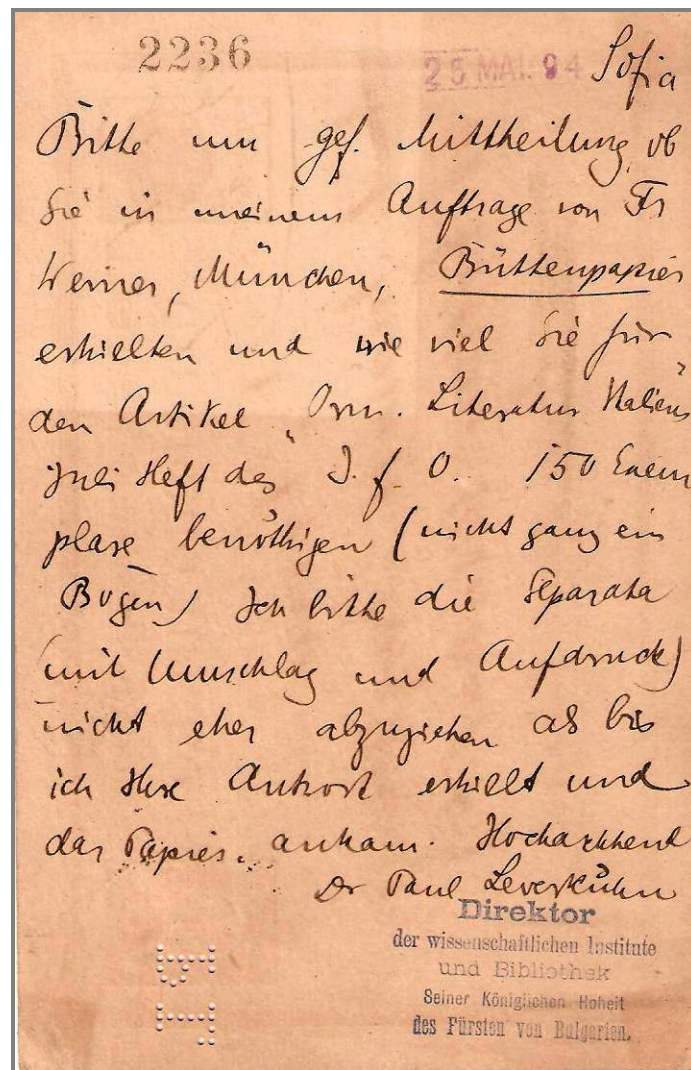 2236
25 MAI. 94 Sofia
Bitte um gef. Mittheilung, ob
Sie in meinem Auftrage von Fr
Werner, München, Büttenpapier
erhielten und wie viel Sie für
den Artikel „Orn. Literatur Italiens"
Juli Heft des J. f. O. 150 Exem
plare benöthigen (nicht ganz ein
Bogen) Ich bitte die Separata
(mit Umschlag und Aufdruck)
nicht eher abzuziehen als bis
ich Ihre Antwort erhielt und
das Papier ankam. Hochachtend
Dr Paul Leverkühn
Direktor
der wissenschaftlichen Institute
und Bibliothek
Seiner Königlichen Hoheit
des Fürsten von Bulgarien.